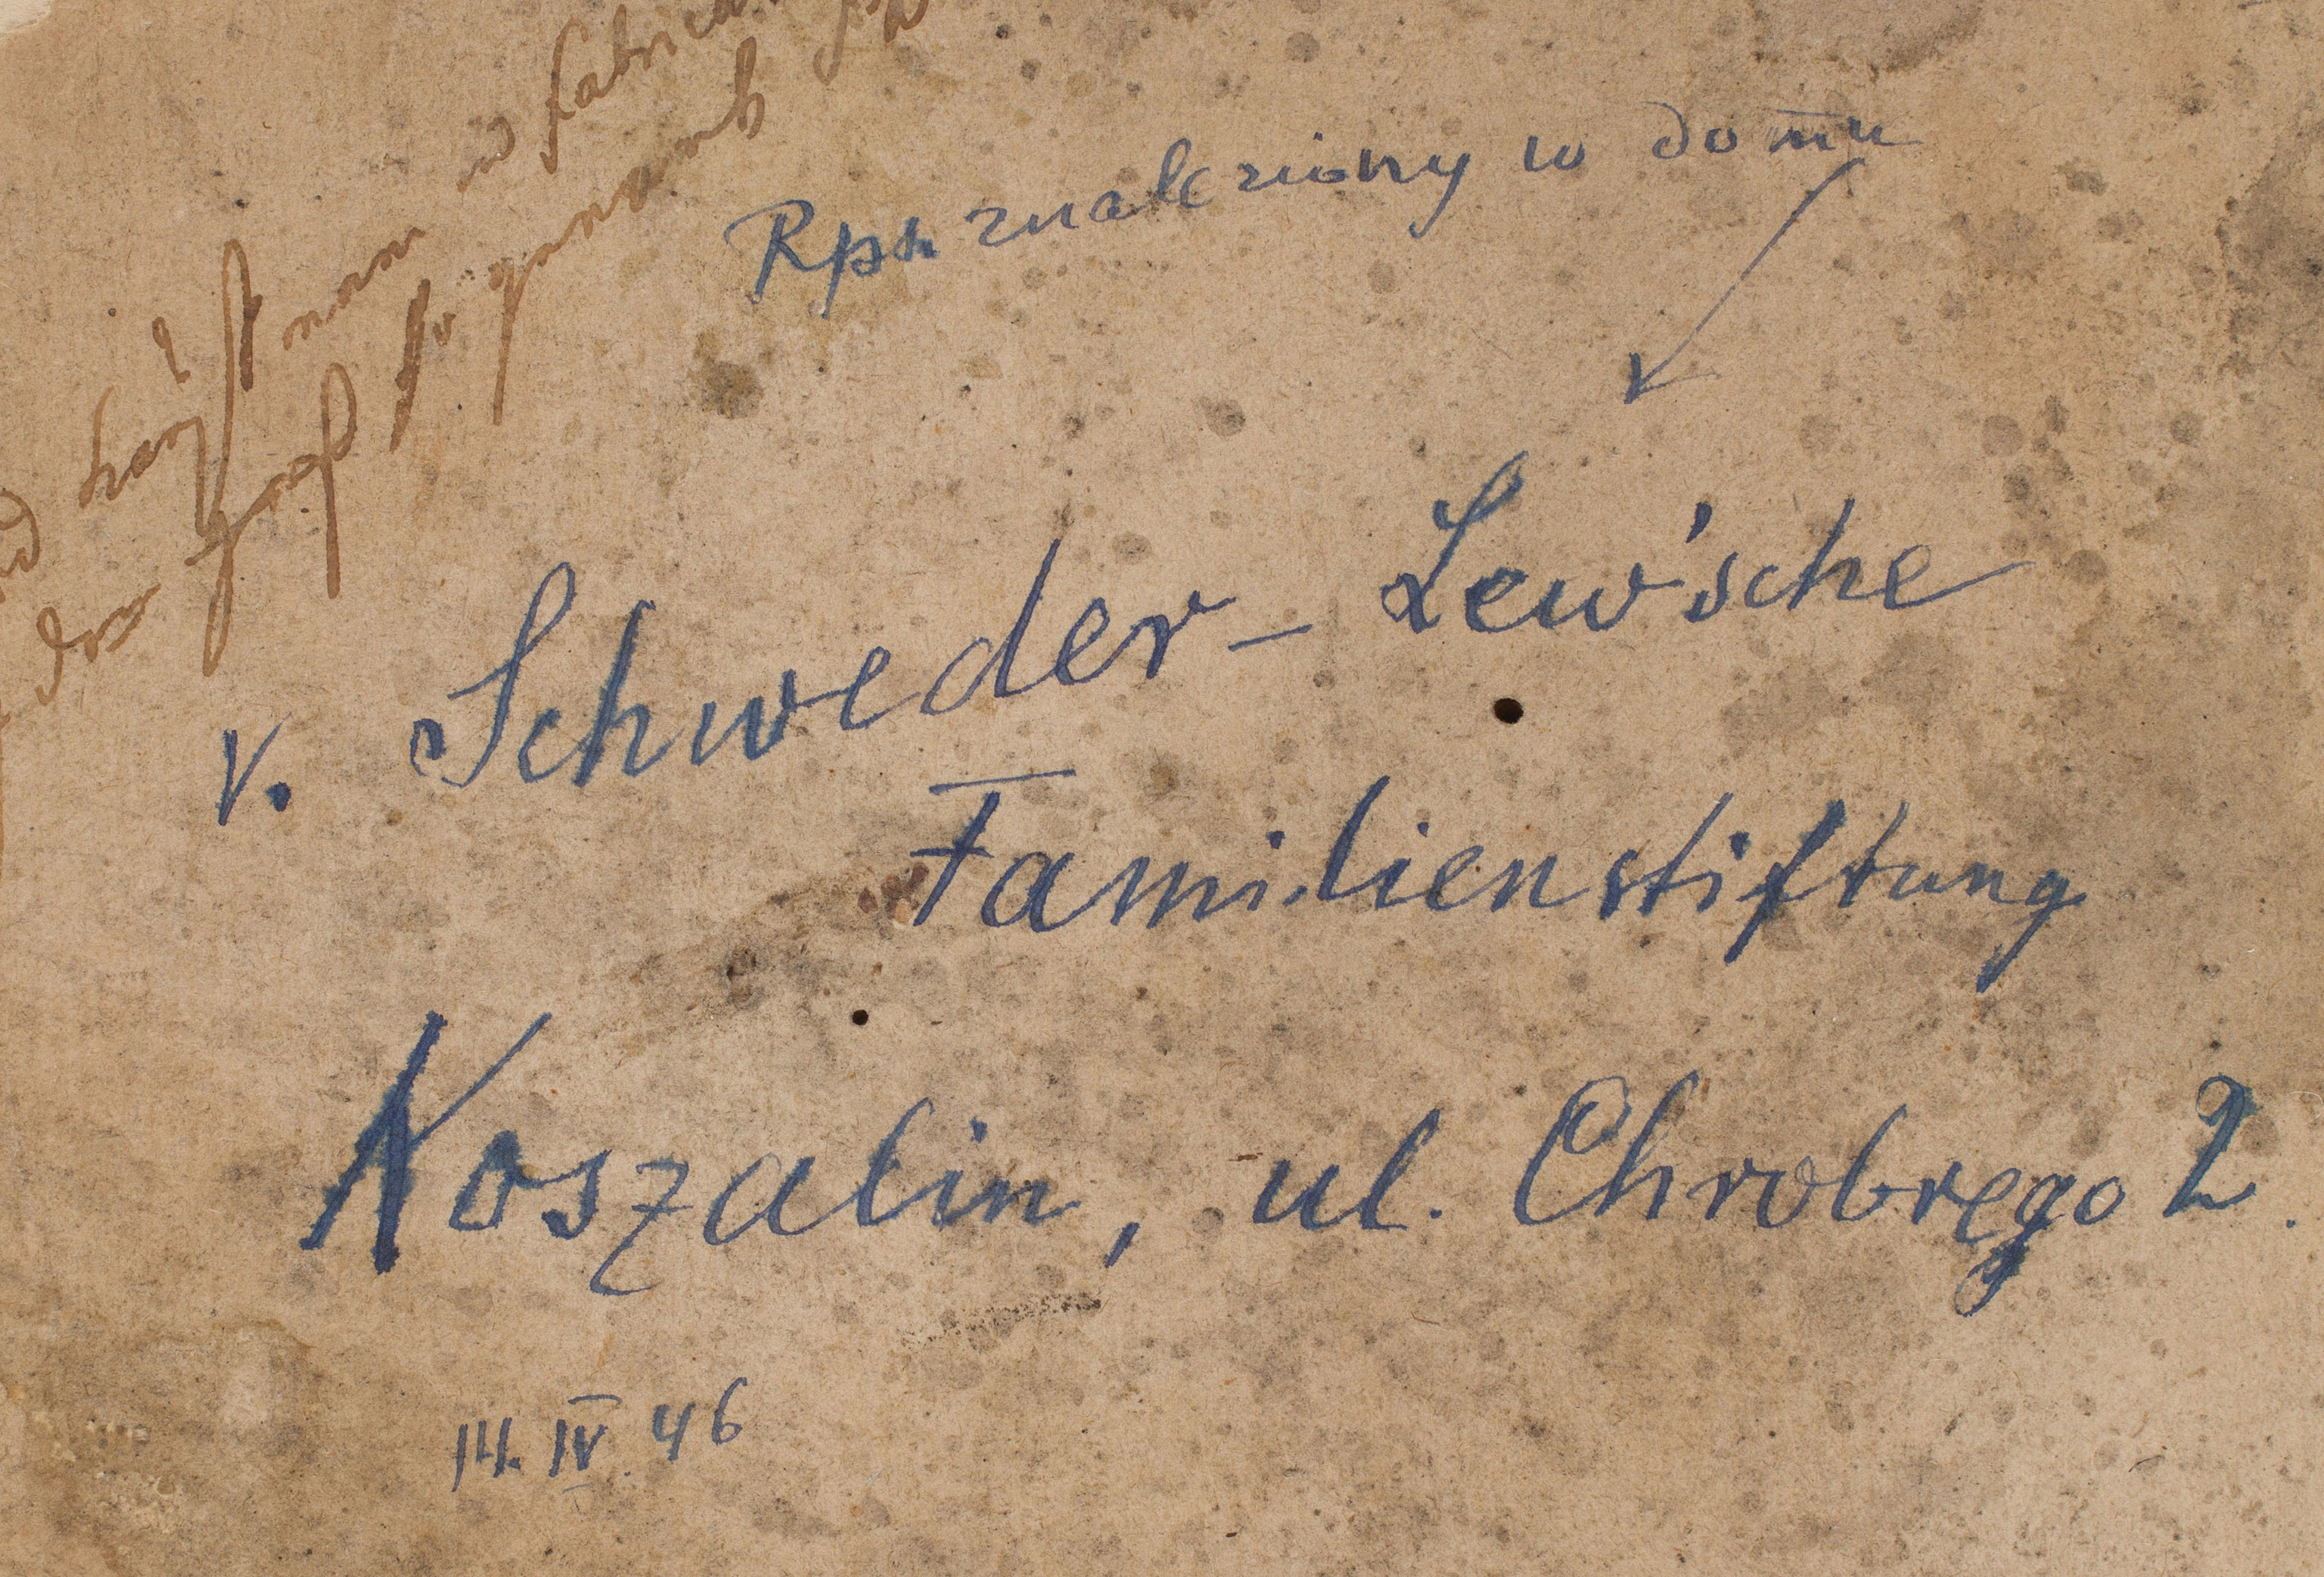 Rps znaleziony w domu
v. Schweder - Lew'sche
Familienstiftung
Koszalin, ul. Chrobrego 2.
14. IV. 46